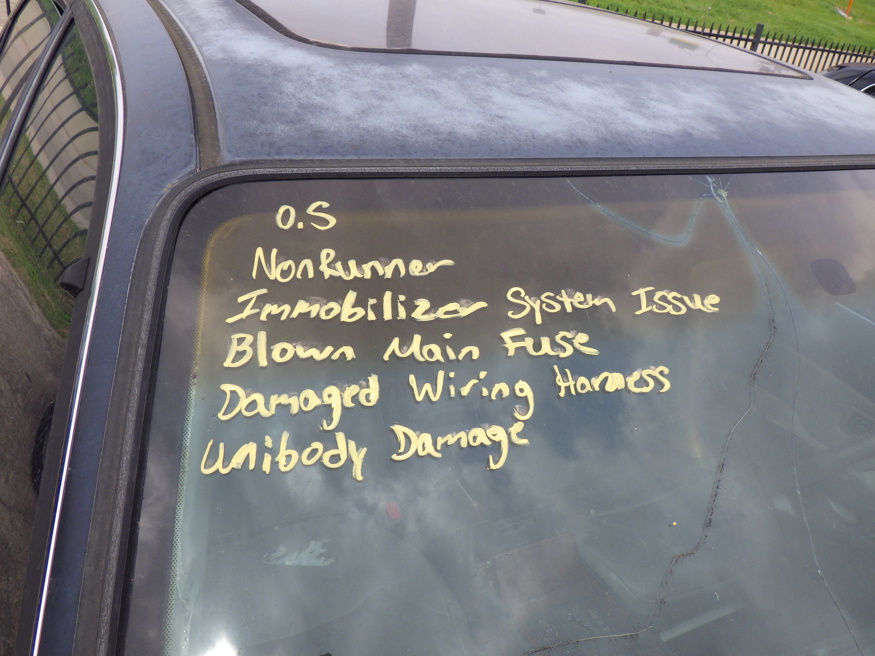 O.S
NonRunner
Immobilizer System Issue
Blown Main Fuse
Damaged Wiring Harness
Unibody Damage